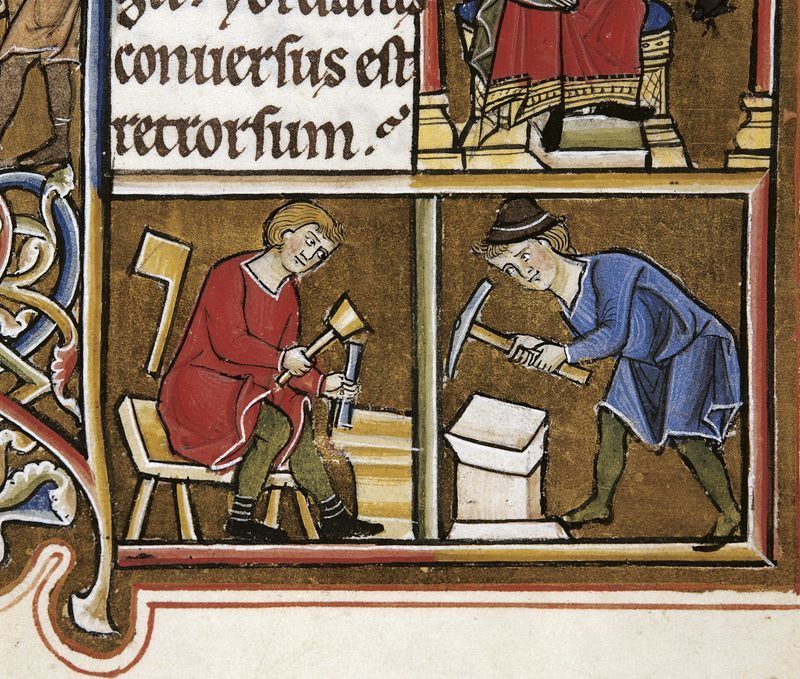 git. yordanis
conuersus est
retrorsum.